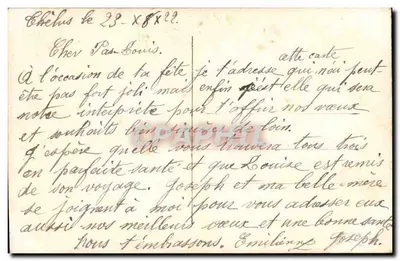 Thélus le 28-X8X22.
Cher Pas-Louis.
À l'occasion de ta fête je t'adresse cette carte qui n'ai peut-
être pas fort joli mais enfin c'est elle qui sera
notre interprète pour t'offrir nos vœux
et souhaits bien de loin.
J'espère qu'elle vous trouvera tous trois
en parfaite santé et que Louise est remis
de son voyage. Joseph et ma belle-mère
se joignent à moi pour vous adresser eux
aussi nos meilleurs vœux et une bonne santé
Nous t'embrassons. Emilienne Joseph.